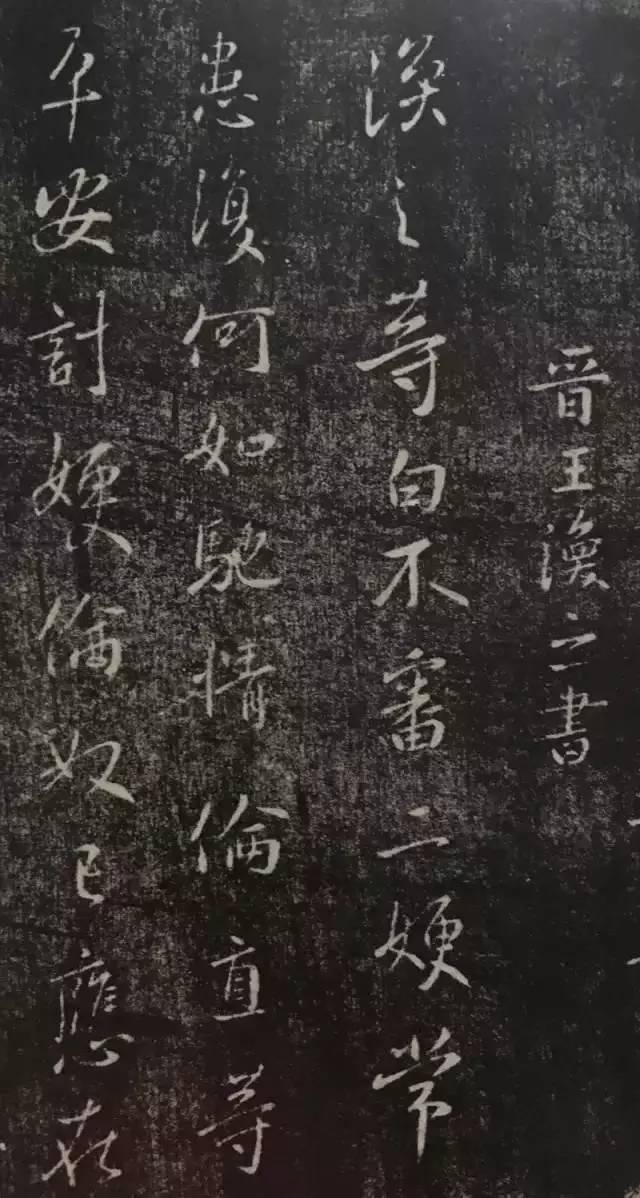 晋王渙之書
渙之等白不審二嫂常
患復何如馳情倫直等
平安計嫂倫奴已應在